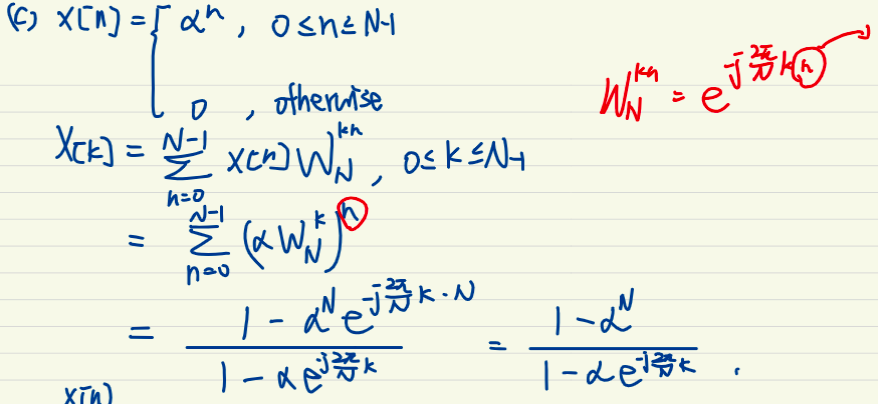 (c) x[n] = { α^n , 0 ≤ n ≤ N-1
0 , otherwise
W_N^{kn} = e^{-j\frac{2π}{N}kn}
X[k] = \sum_{n=0}^{N-1} x[n] W_N^{kn} , 0 ≤ k ≤ N-1
= \sum_{n=0}^{N-1} (α W_N^k)^n
= \frac{1 - α^N e^{-j\frac{2π}{N}k·N}}{1 - α e^{-j\frac{2π}{N}k}} = \frac{1 - α^N}{1 - α e^{-j\frac{2π}{N}k}} .
x[n]